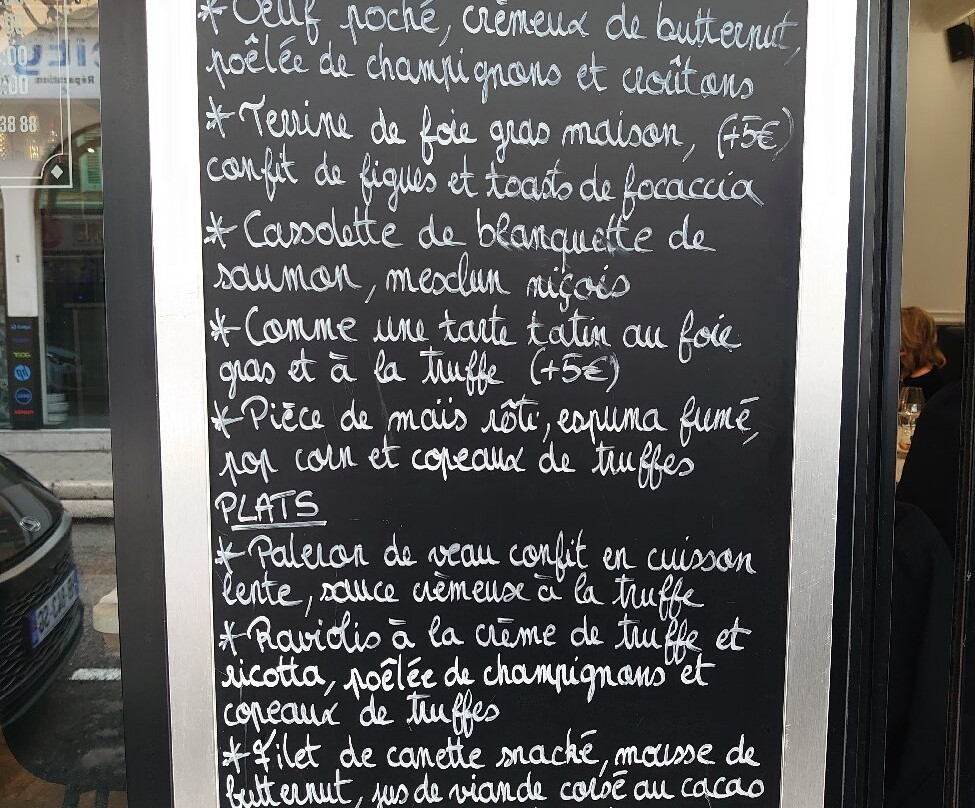 * Oeuf poché, crèmeux de butternut,
poêlée de champignons et croûtons
* Terrine de foie gras maison, (+5€)
confit de figues et toasts de focaccia
* Cassolette de blanquette de
saumon, mesclun niçois
* Comme une tarte tatin au foie
gras et à la truffe (+5€)
* Pièce de maïs rôti, espuma fumé,
pop corn et copeaux de truffes
PLATS
* Paleron de veau confit en cuisson
lente, sauce crèmeuse à la truffe
* Raviolis à la crème de truffe et
ricotta, poêlée de champignons et
copeaux de truffes
* Filet de canette snacké, mousse de
butternut, jus de viande corsé au cacao
38 88
hp